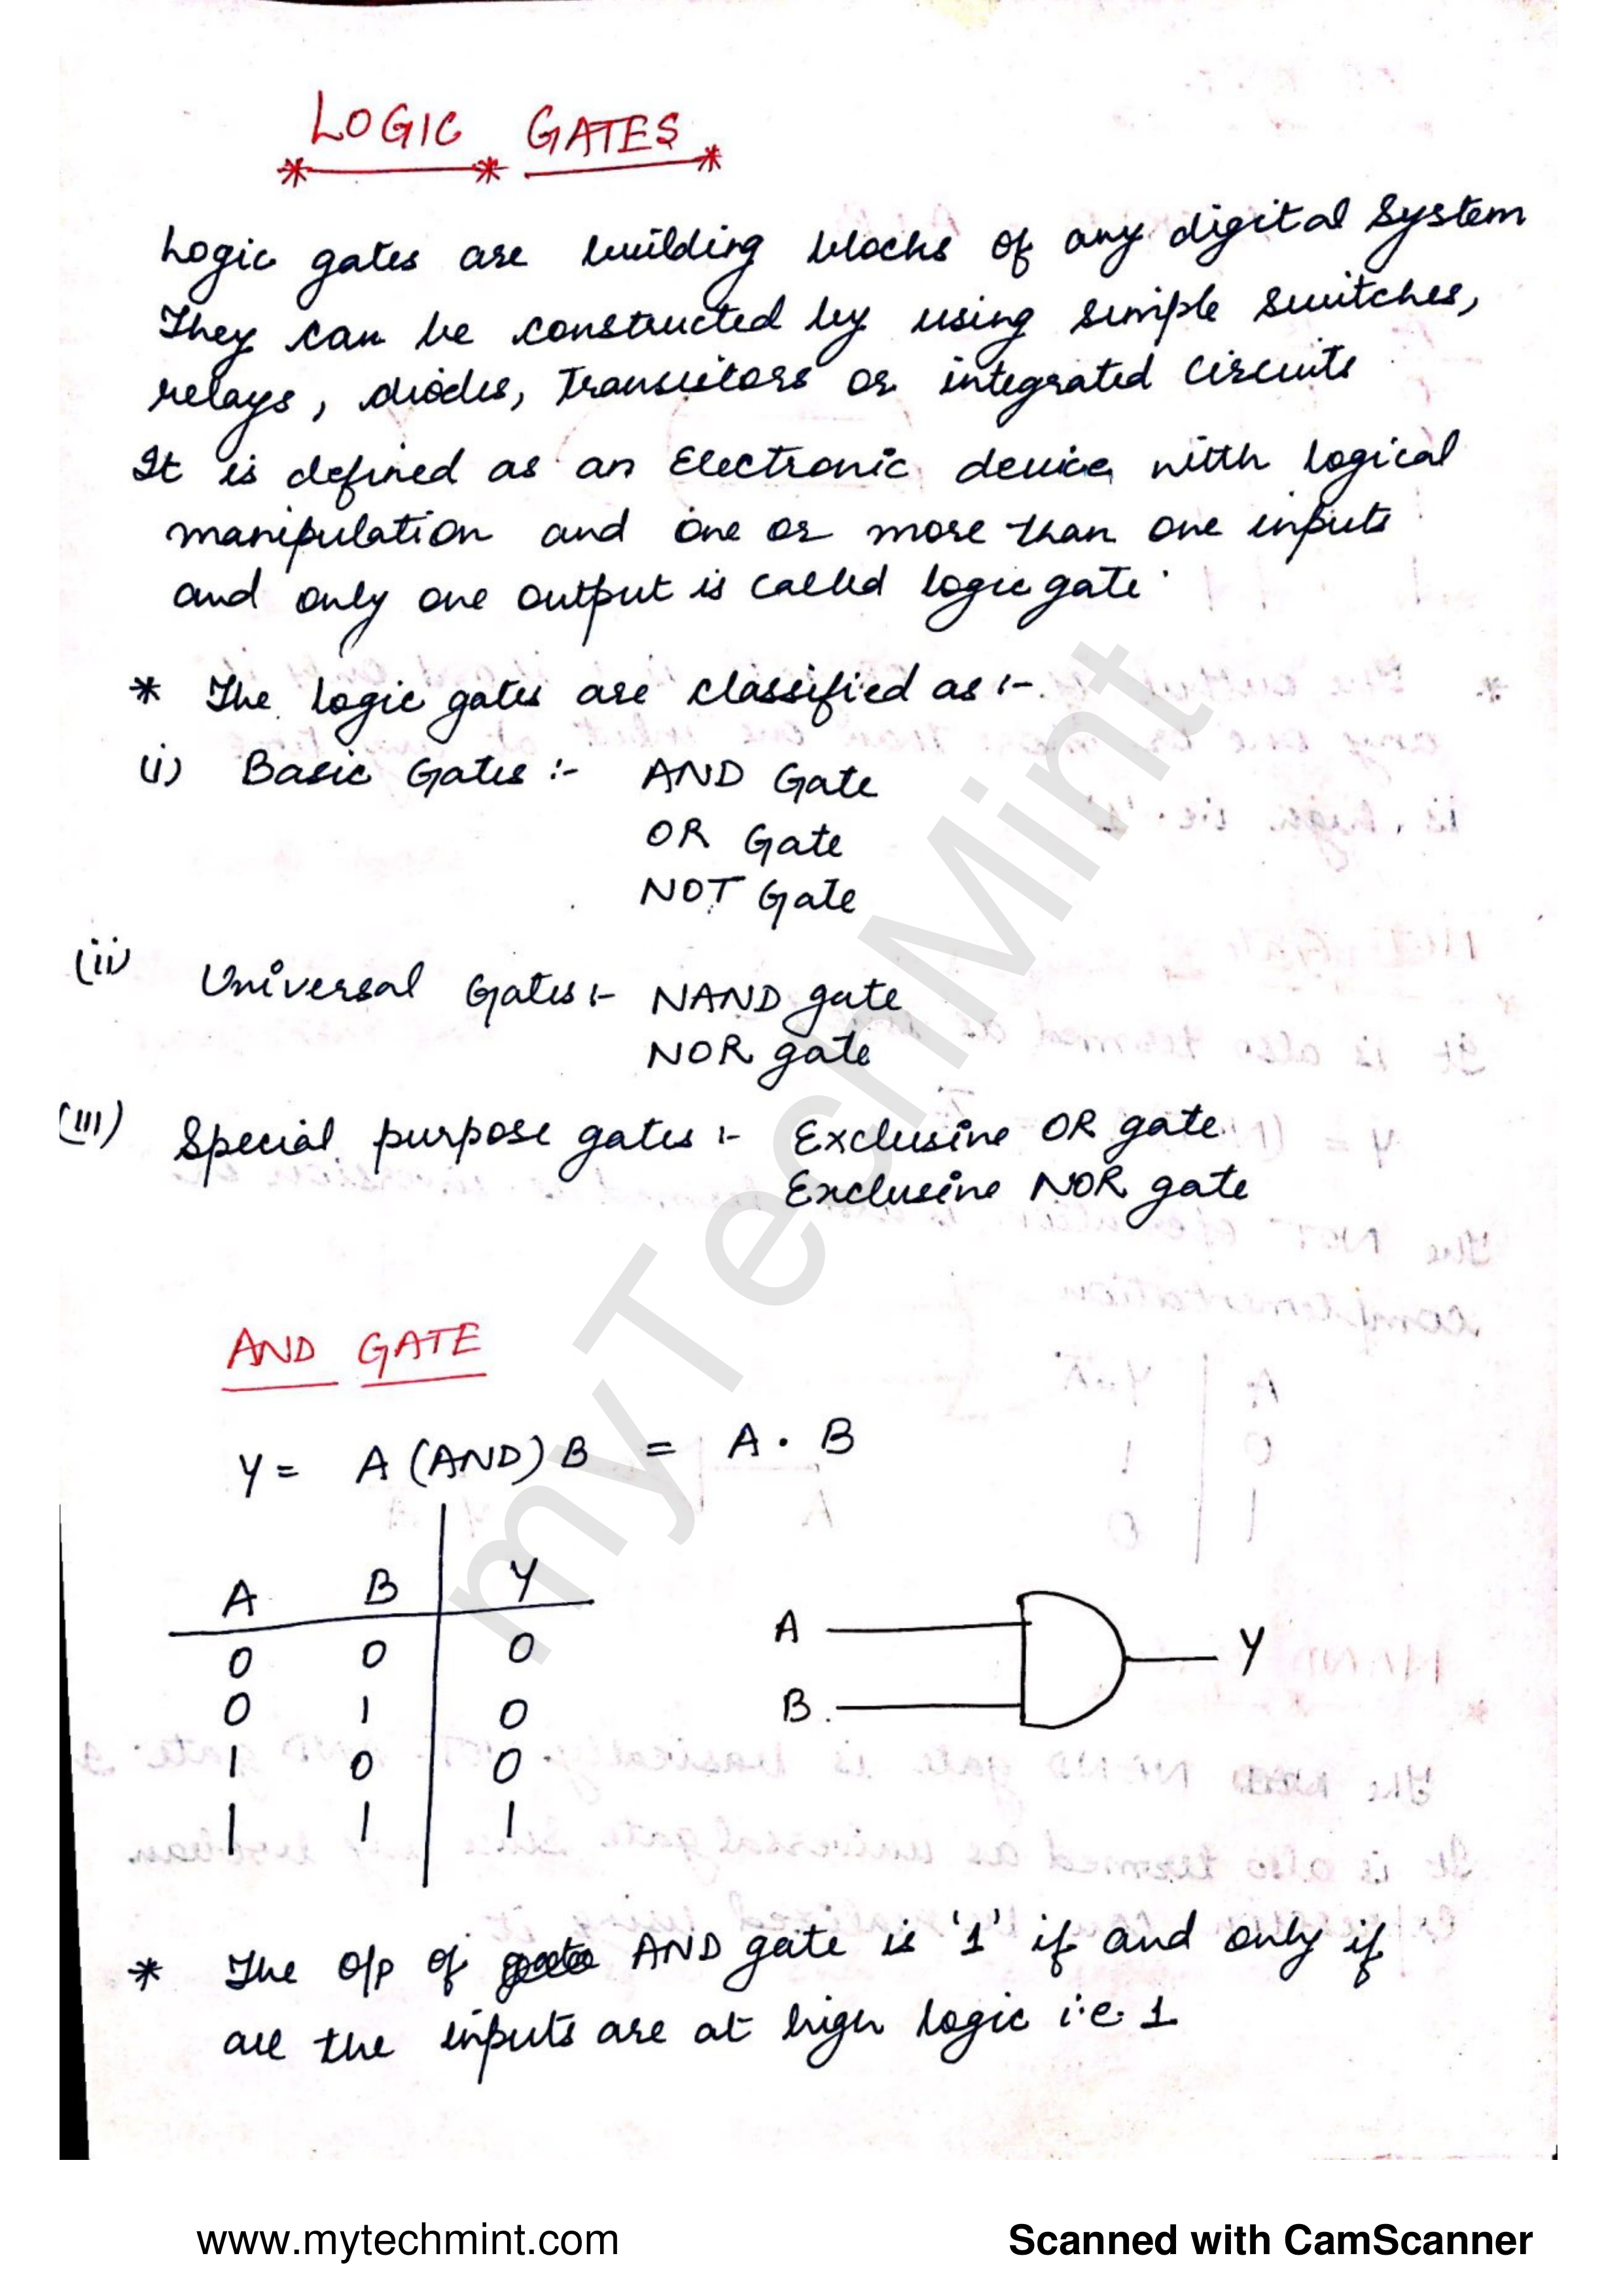 LOGIC GATES
Logic gates are building blocks of any digital System
They can be constructed by using simple switches,
relays, diodes, Transistors or integrated circuits
It is defined as an Electronic device with logical
manipulation and one or more than one inputs
and only one output is called logic gate.
* The logic gates are classified as :-
(i) Basic Gates :- AND Gate
OR Gate
NOT Gate
(ii) Universal Gates :- NAND gate
NOR gate
(iii) Special purpose gates :- Exclusive OR gate
Exclusive NOR gate
AND GATE
Y = A (AND) B = A . B
A B Y
0 0 0
0 1 0
1 0 0
1 1 1
A
B
Y
* The o/p of AND gate is '1' if and only if
all the inputs are at high logic i.e. 1
myTechMint
www.mytechmint.com
Scanned with CamScanner